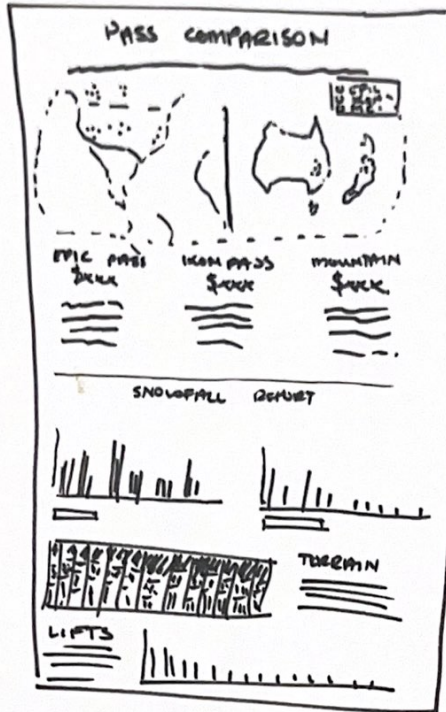 PASS COMPARISON
EPIC
IKON
EPIC PASS
$xxx
IKON PASS
$xxx
MOUNTAIN
$xxx
SNOWFALL REPORT
TERRAIN
LIFTS